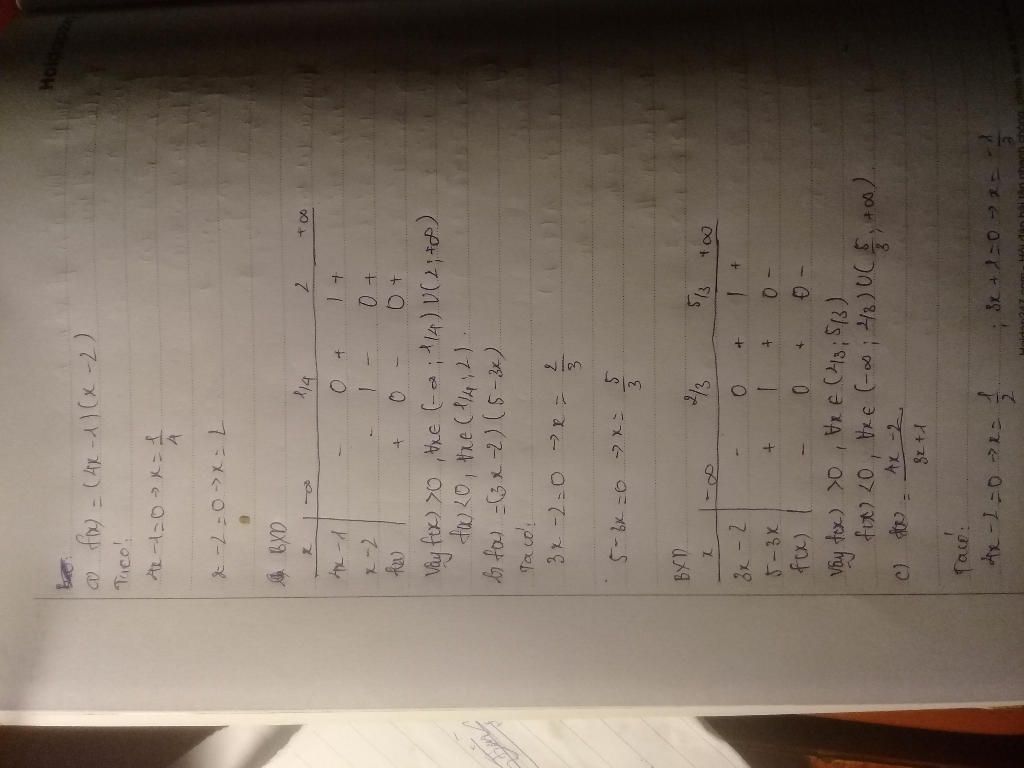 a) f(x) = (4x - 1)(x - 2)
Ta có:
4x - 1 = 0 → x = 1/4
x - 2 = 0 → x = 2
BXD
x -∞ 1/4 2 +∞
4x - 1 - 0 + | +
x - 2 - | - 0 +
f(x) + 0 - 0 +
Vậy f(x) > 0, ∀x ∈ (-∞; 1/4) ∪ (2; +∞)
f(x) < 0, ∀x ∈ (1/4; 2)
b) f(x) = (3x - 2)(5 - 3x)
Ta có:
3x - 2 = 0 → x = 2/3
5 - 3x = 0 → x = 5/3
BXD
x -∞ 2/3 5/3 +∞
3x - 2 - 0 + | +
5 - 3x + | + 0 -
f(x) - 0 + 0 -
Vậy f(x) > 0, ∀x ∈ (2/3; 5/3)
f(x) < 0, ∀x ∈ (-∞; 2/3) ∪ (5/3; +∞)
c) f(x) = (4x - 2)/(3x + 1)
Ta có:
4x - 2 = 0 → x = 1/2 ; 3x + 1 = 0 → x = -1/3